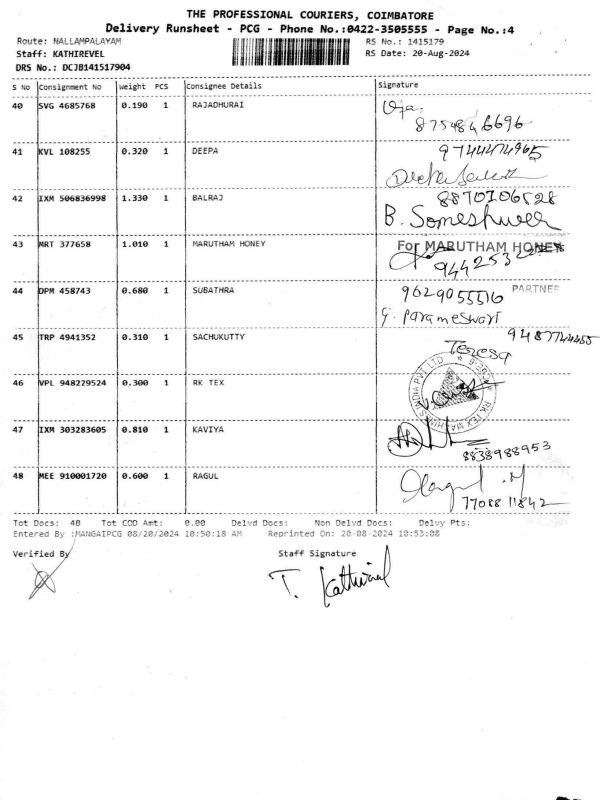 THE PROFESSIONAL COURIERS, COIMBATORE
Delivery Runsheet - PCG - Phone No.:0422-3505555 - Page No.:4
Route: NALLAMPALAYAM RS No.: 1415179
Staff: KATHIREVEL RS Date: 20-Aug-2024
DRS No.: DCJB141517904
S No Consignment No Weight PCS Consignee Details Signature
40 SVG 4685768 0.190 1 RAJADHURAI
8754846696
41 KVL 108255 0.320 1 DEEPA 9744474965
42 IXM 506836998 1.330 1 BALRAJ 8870106528
B. Someshwer
43 MRT 377658 1.010 1 MARUTHAM HONEY For MARUTHAM HONEY
PARTNER
44 DPM 458743 0.680 1 SUBATHRA 9629055516
G. Parameswari
45 TRP 4941352 0.310 1 SACHUKUTTY 9487744455
Teresa
46 VPL 948229524 0.300 1 RK TEX
47 IXM 303283605 0.810 1 KAVIYA
8838988953
48 MEE 910001720 0.600 1 RAGUL Ragul .M
7708811842
Tot Docs: 48 Tot COD Amt: 0.00 Delvd Docs: Non Delvd Docs: Delvy Pts:
Entered By :MANGAIPCG 08/20/2024 10:50:18 AM Reprinted On: 20-08-2024 10:53:08
Verified By Staff Signature
T. Kathirvel